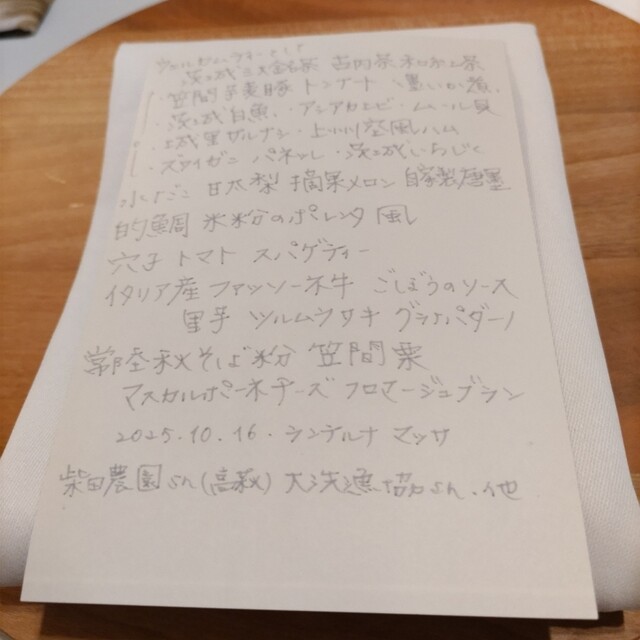 ウェルカムドリンクとして
茨城三大銘茶 古内茶 和紅茶
・笠間 豚 トンナート 墨いか煮、
茨城白魚、アシアカエビ・ムール貝
・城里 ・ 風ハム
・ズワイガニ パネッレ・茨城いちじく
水だこ 甘太梨 摘果メロン 自家製
的鯛 米粉のポレンタ風
穴子 トマト スパゲティー
イタリア産 ファッソーネ牛 ごぼうのソース
里芋 ツルムラサキ グラナパダーノ
常陸秋そば粉 笠間栗
マスカルポーネチーズ フロマージュブラン
2025.10.16. ランテルナ マッサ
柴田農園さん(高萩) 大洗漁協さん、他